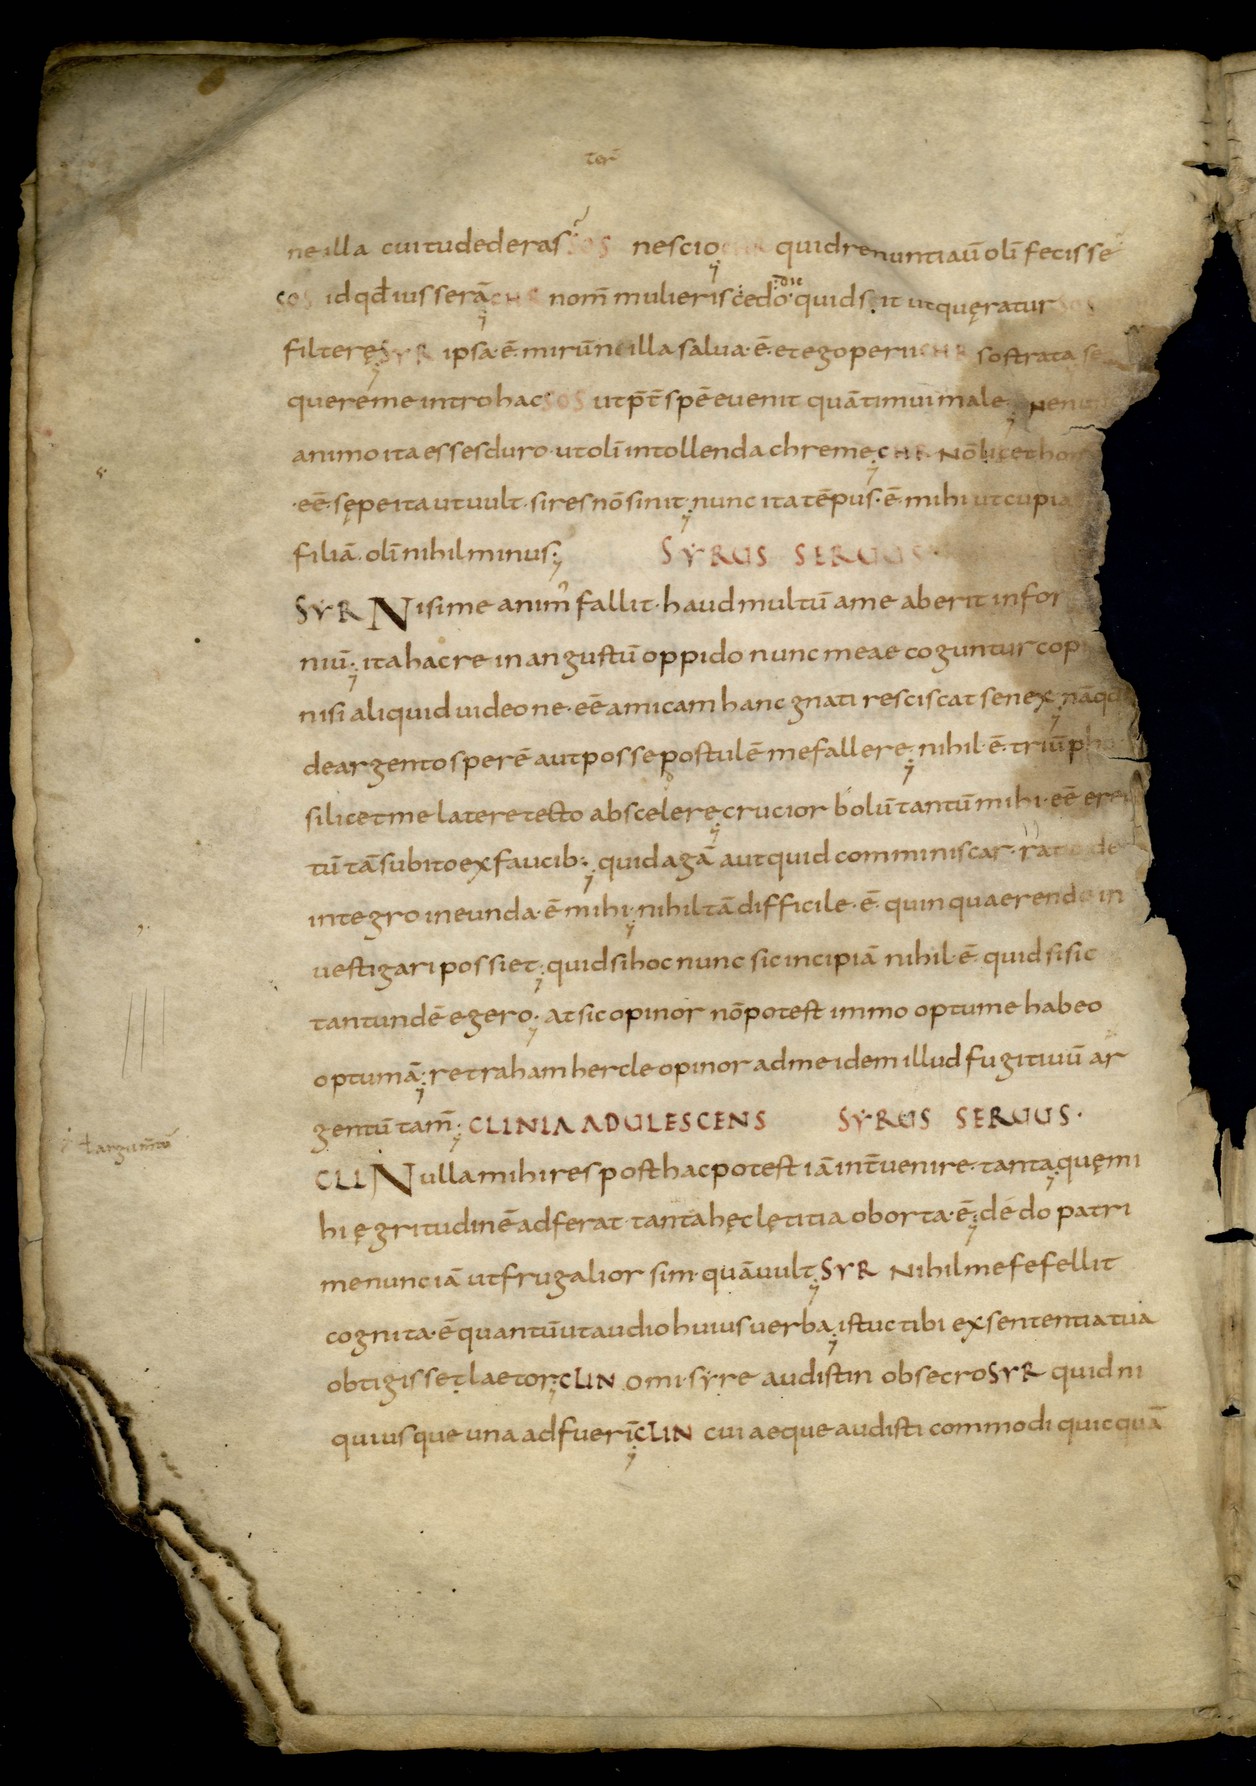 ter
ne illa cui tu dederas SOS nescio CHR quid renuntiaū olī fecisse
SOS id qđ iusserā CHR nom̄ mulieris cedo quid sit ut quęratur SOS
filterę SYR ipsa·ē· mirū ni illa salua·ē· et ego perii CHR sostrata se
quere me intro hac SOS ut p̄t̄ spē euenit quā timui male
animo ita esses duro· ut olī in tollenda chreme CHR Nō licet
·eē· sępe ita ut uult· si res nō sinit nunc ita tēpus·ē· mihi ut cupiā
filiā· olī nihil minus; SYRUS SERUUS·
SYR Nisi me anim̄ fallit· haud multū a me aberit infor
niū· ita hac re in angustū oppido nunc meae coguntur cop
nisi aliquid uideo ne·eē amicam hanc gnati resciscat senex nāqđ
de argento sperē aut posse postulē me fallere nihil·ē· triūpho
si licet me latere tecto abscelere crucior bolū tantū mihi·eē erep
tū tā subito ex faucib; quid agā aut quid comminiscar· ratio de
integro ineunda·ē mihi· nihil tā difficile·ē· quin quaerendo in
uestigari possiet; quid si hoc nunc sic incipiā nihil·ē· quid si sic
tantundē egero· at sic opinor nō potest immo optume habeo
optumā; retraham hercle opinor ad me idem illud fugitiuū ar
gentū tam̄; CLINIA ADULESCENS SYRUS SERUUS·
ł argum̄to
CLI Nulla mihi res posthac potest iā int̄uenire· tanta quę mi
hi ęgritudinē adferat· tanta hęc lętitia oborta·ē; dedo patri
me nunc iā ut frugalior sim· quā uult SYR Nihil me fefellit
cognita·ē quantū ut audio huius uerba istuc tibi ex sententia tua
obtigisse laetor CLIN o mi· syre audistin obsecro SYR quid ni
quiusque una adfuerī CLIN cui aeque audisti commodi quicquā